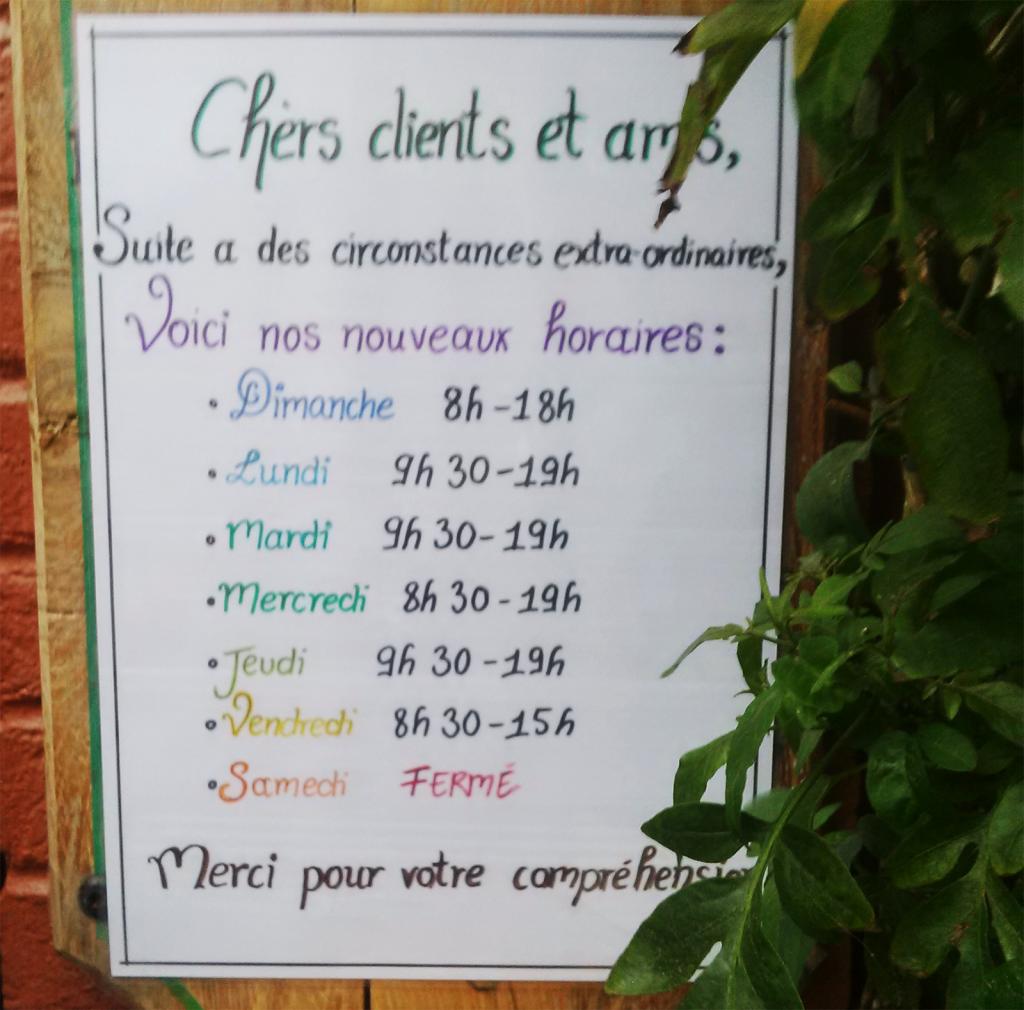 Chers clients et amis,
Suite a des circonstances extra-ordinaires,
Voici nos nouveaux horaires:
• Dimanche 8h-18h
• Lundi 9h 30-19h
• Mardi 9h 30-19h
• Mercredi 8h 30-19h
• Jeudi 9h 30-19h
• Vendredi 8h 30-15h
• Samedi FERMÉ
Merci pour votre compréhension